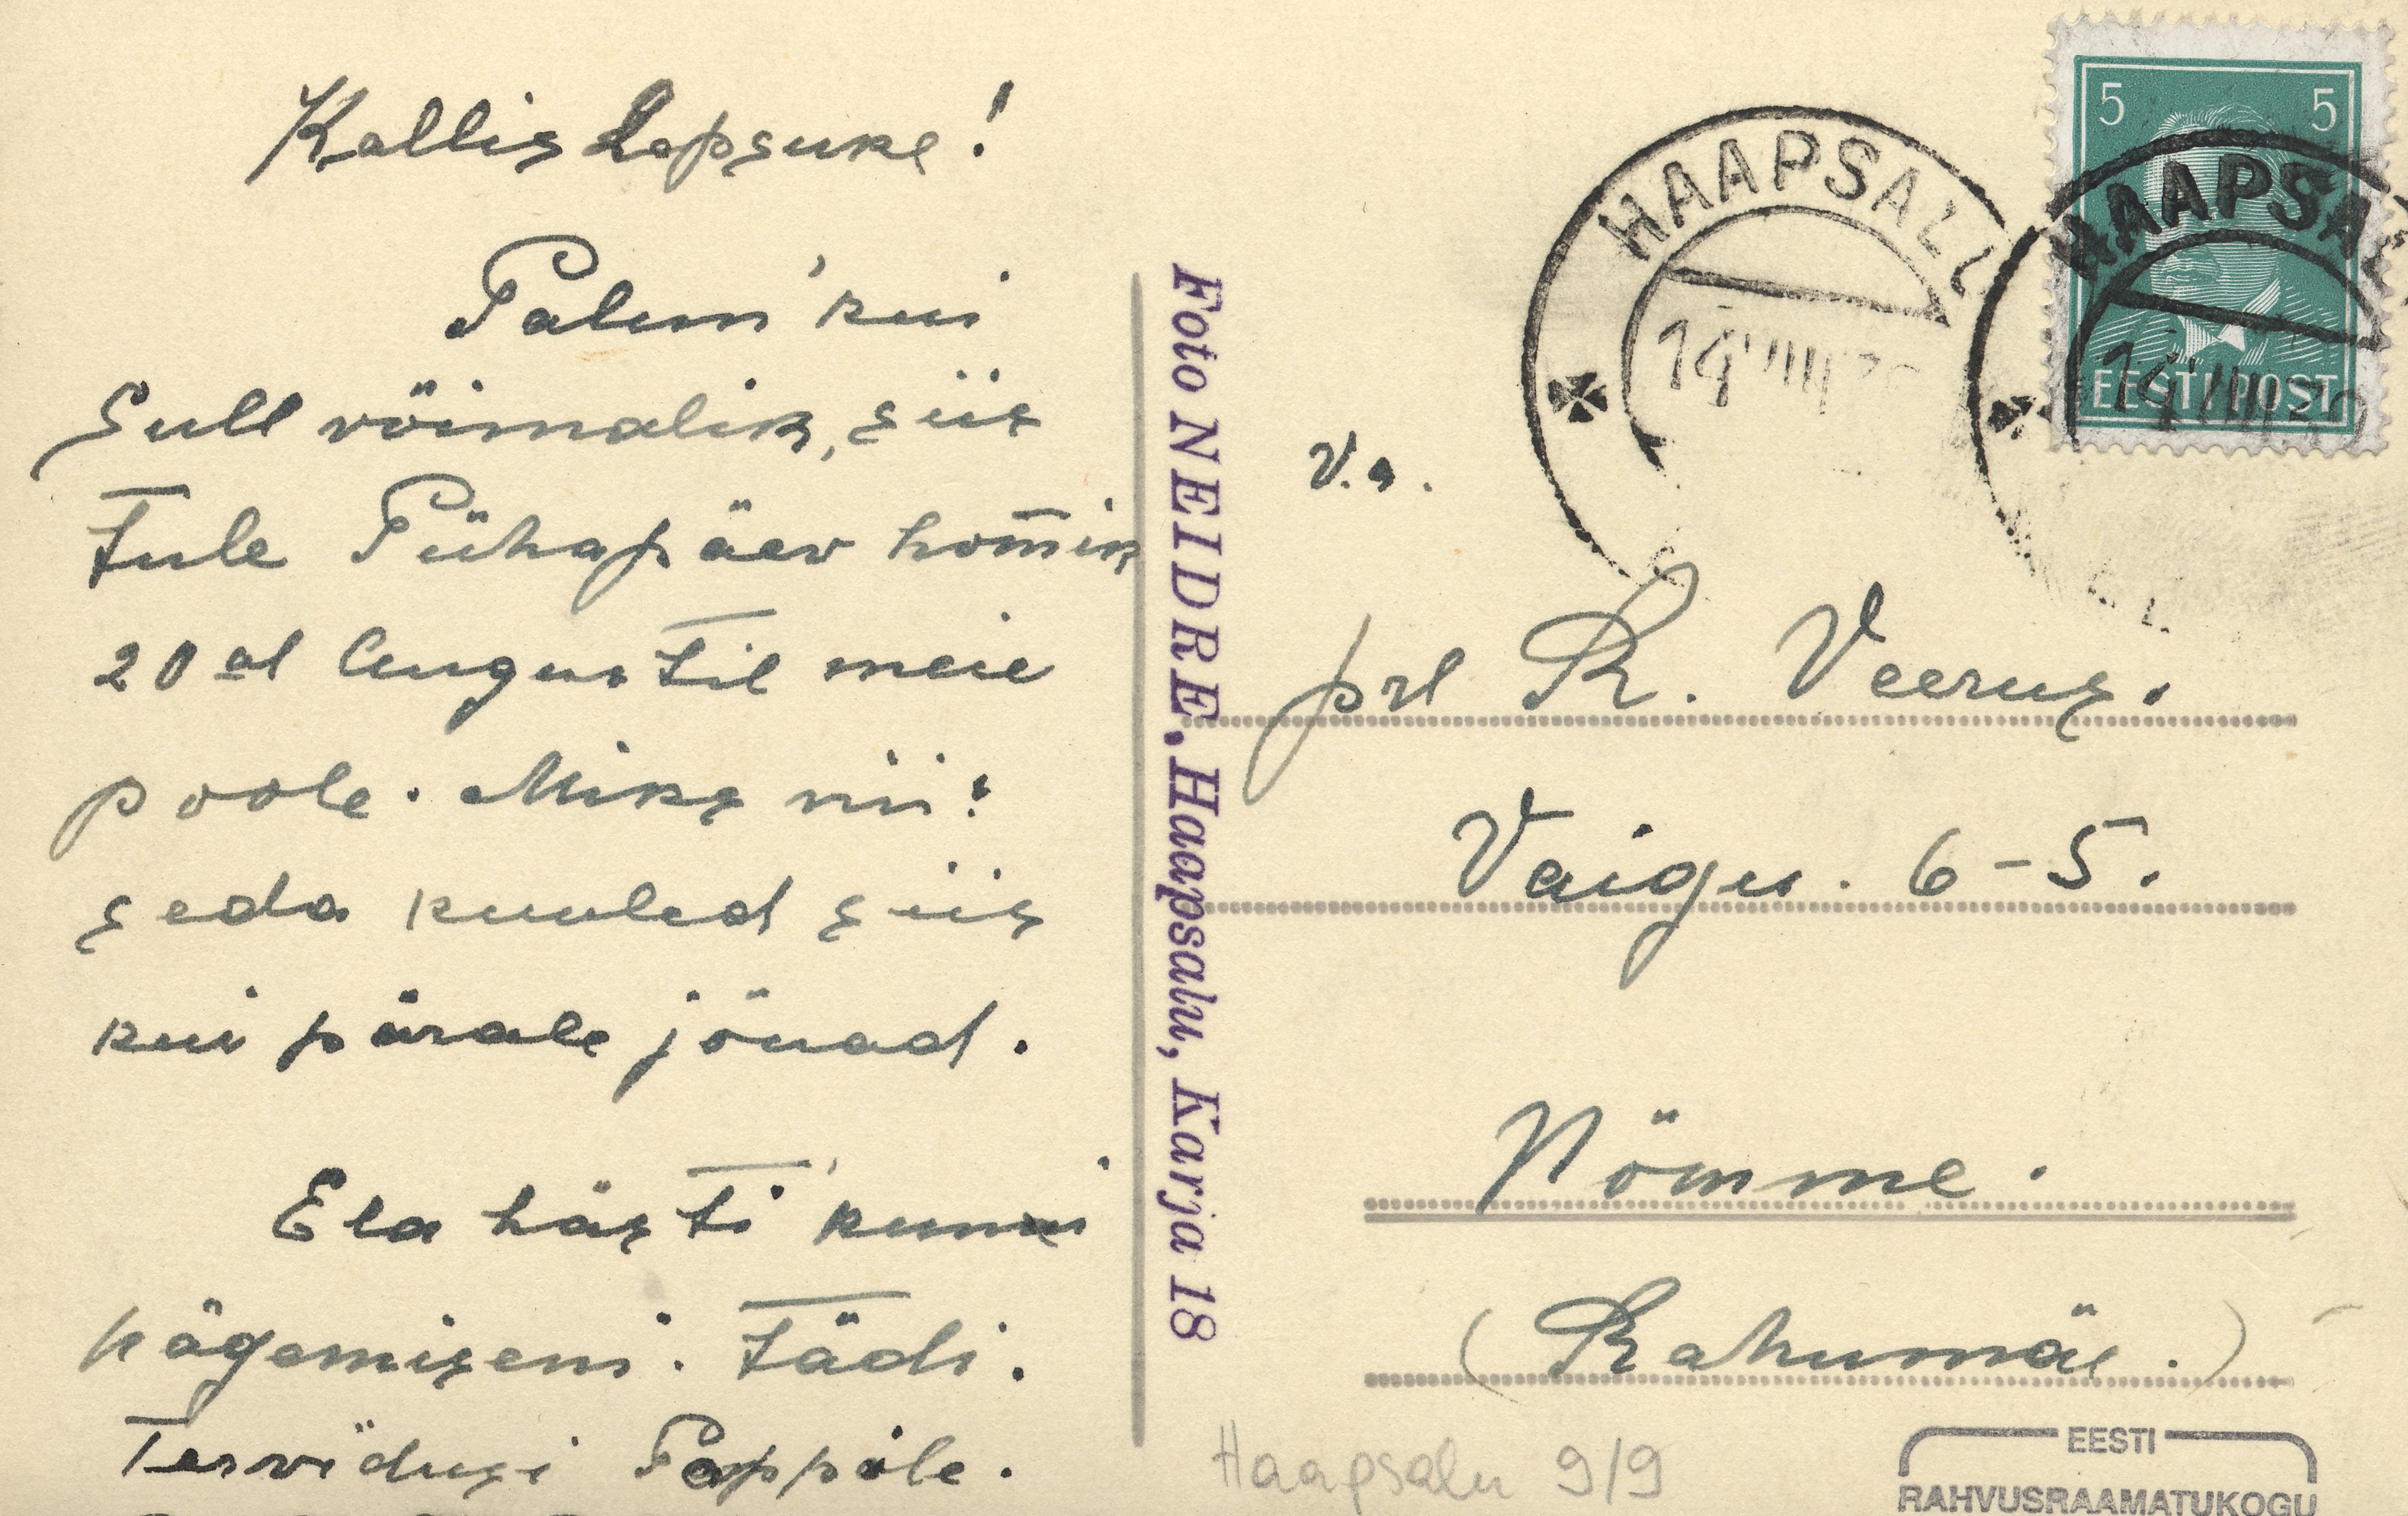 Kallis Lapsuke!
Palun' kui
Sull võimalik, siis
Tule Pühapäev hom̄ik
20 al Augustil meie
poole. Miks nii?
seda kuuled siis
kui pärale jõuad.
Ela hästi' kunni
nägemiseni. Tädi.
Tervidusi Pappale.
Foto NEIDRE, Haapsalu, Karja 18
HAAPSALU
14 VIII 39
HAAPSAL
14 VIII 39
5 5
EESTI POST
V.a.
prl R. Veerus.
Vaigu. 6-5.
Nõmme.
(Rahumäe.)
Haapsalu 9/9
EESTI
RAHVUSRAAMATUKOGU